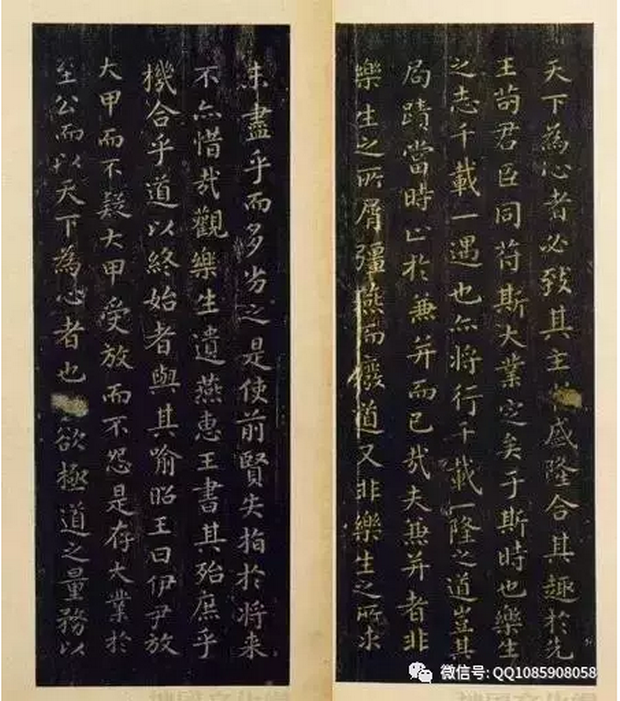 未盡乎而多劣之是使前賢失指於将来
不亦惜哉觀樂生遺燕惠王書其殆庶乎
機合乎道以終始者與其喻昭王曰伊尹放
大甲而不疑大甲受放而不怨是存大業於
至公而以天下為心者也欲極道之量務以
天下為心者必致其主於盛隆合其趣於先
王苟君臣同苻斯大業定矣于斯時也樂生
之志千載一遇也亦将行千載一隆之道豈其
局蹟當時止於兼并而已哉夫兼并者非
樂生之所屑彊燕而廢道又非樂生之所求
微信号: QQ1085908058